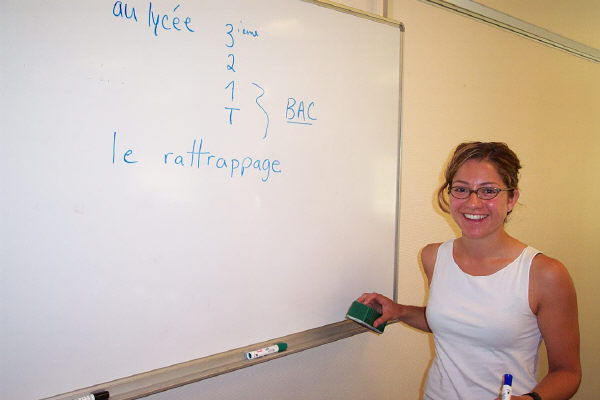 au lycée
3ième
2
1
T
BAC
le rattrappage